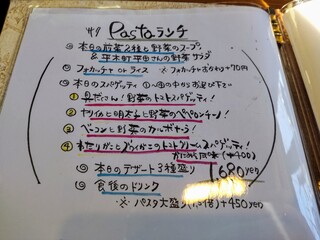 Pastaランチ
◎本日の前菜2種と野菜のスープ
&平木町平田さんの野菜サラダ
◎フォカッチャ or ライス ※フォカッチャおかわり+70円
◎本日のスパゲティ ①〜④の中からお選び下さい
① 具だくさん!野菜のトマトスパゲティ!
② ヤリイカと明太子と野菜のペペロンチーノ!
③ ベーコンと野菜のカルボナーラ!
④ トマトクリームスパゲティ!
(+400)
◎本日のデザート3種盛り
1,680yen
◎食後のドリンク
※パスタ大盛り(1.5倍)+450yen